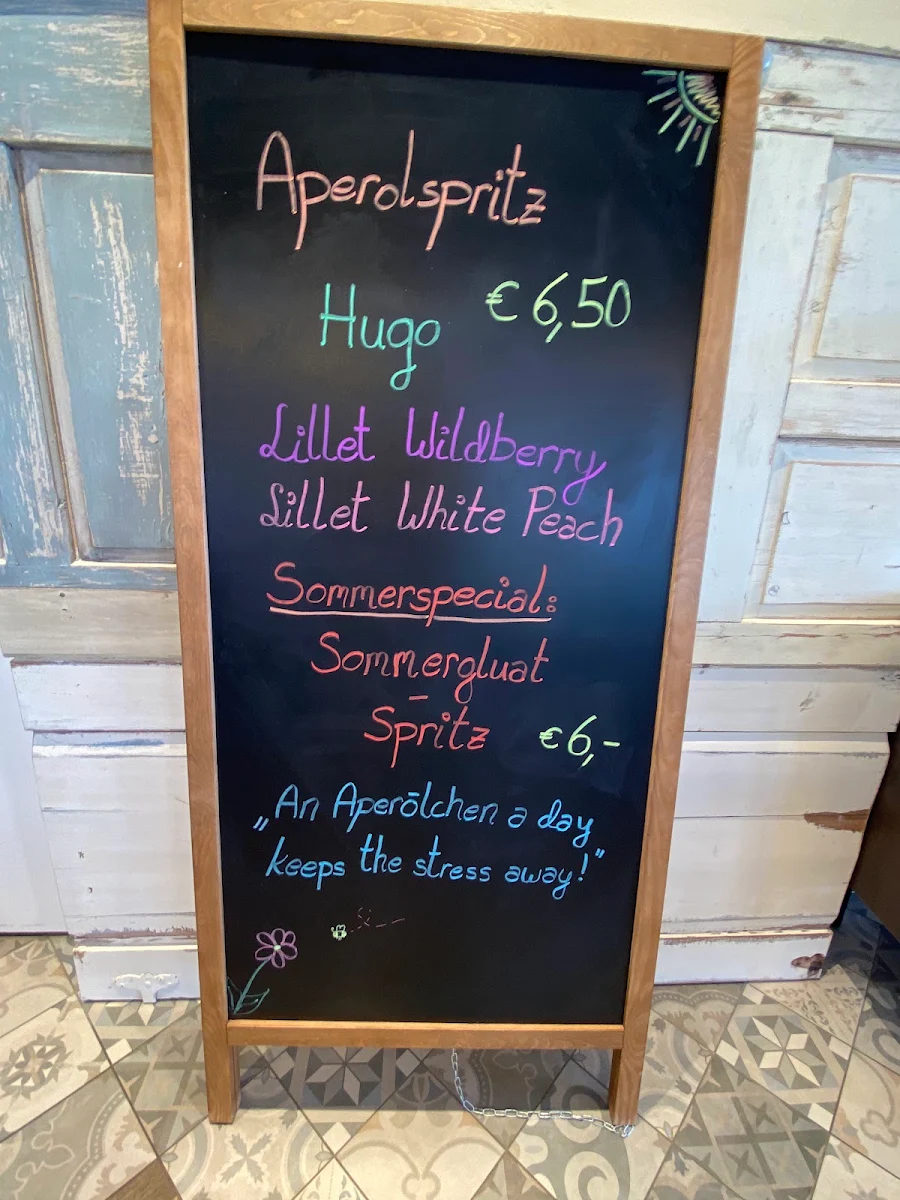 Aperolspritz
Hugo € 6,50
Lillet Wildberry
Lillet White Peach
Sommerspecial:
Sommergluat
-
Spritz € 6,-
„An Aperölchen a day
keeps the stress away!"